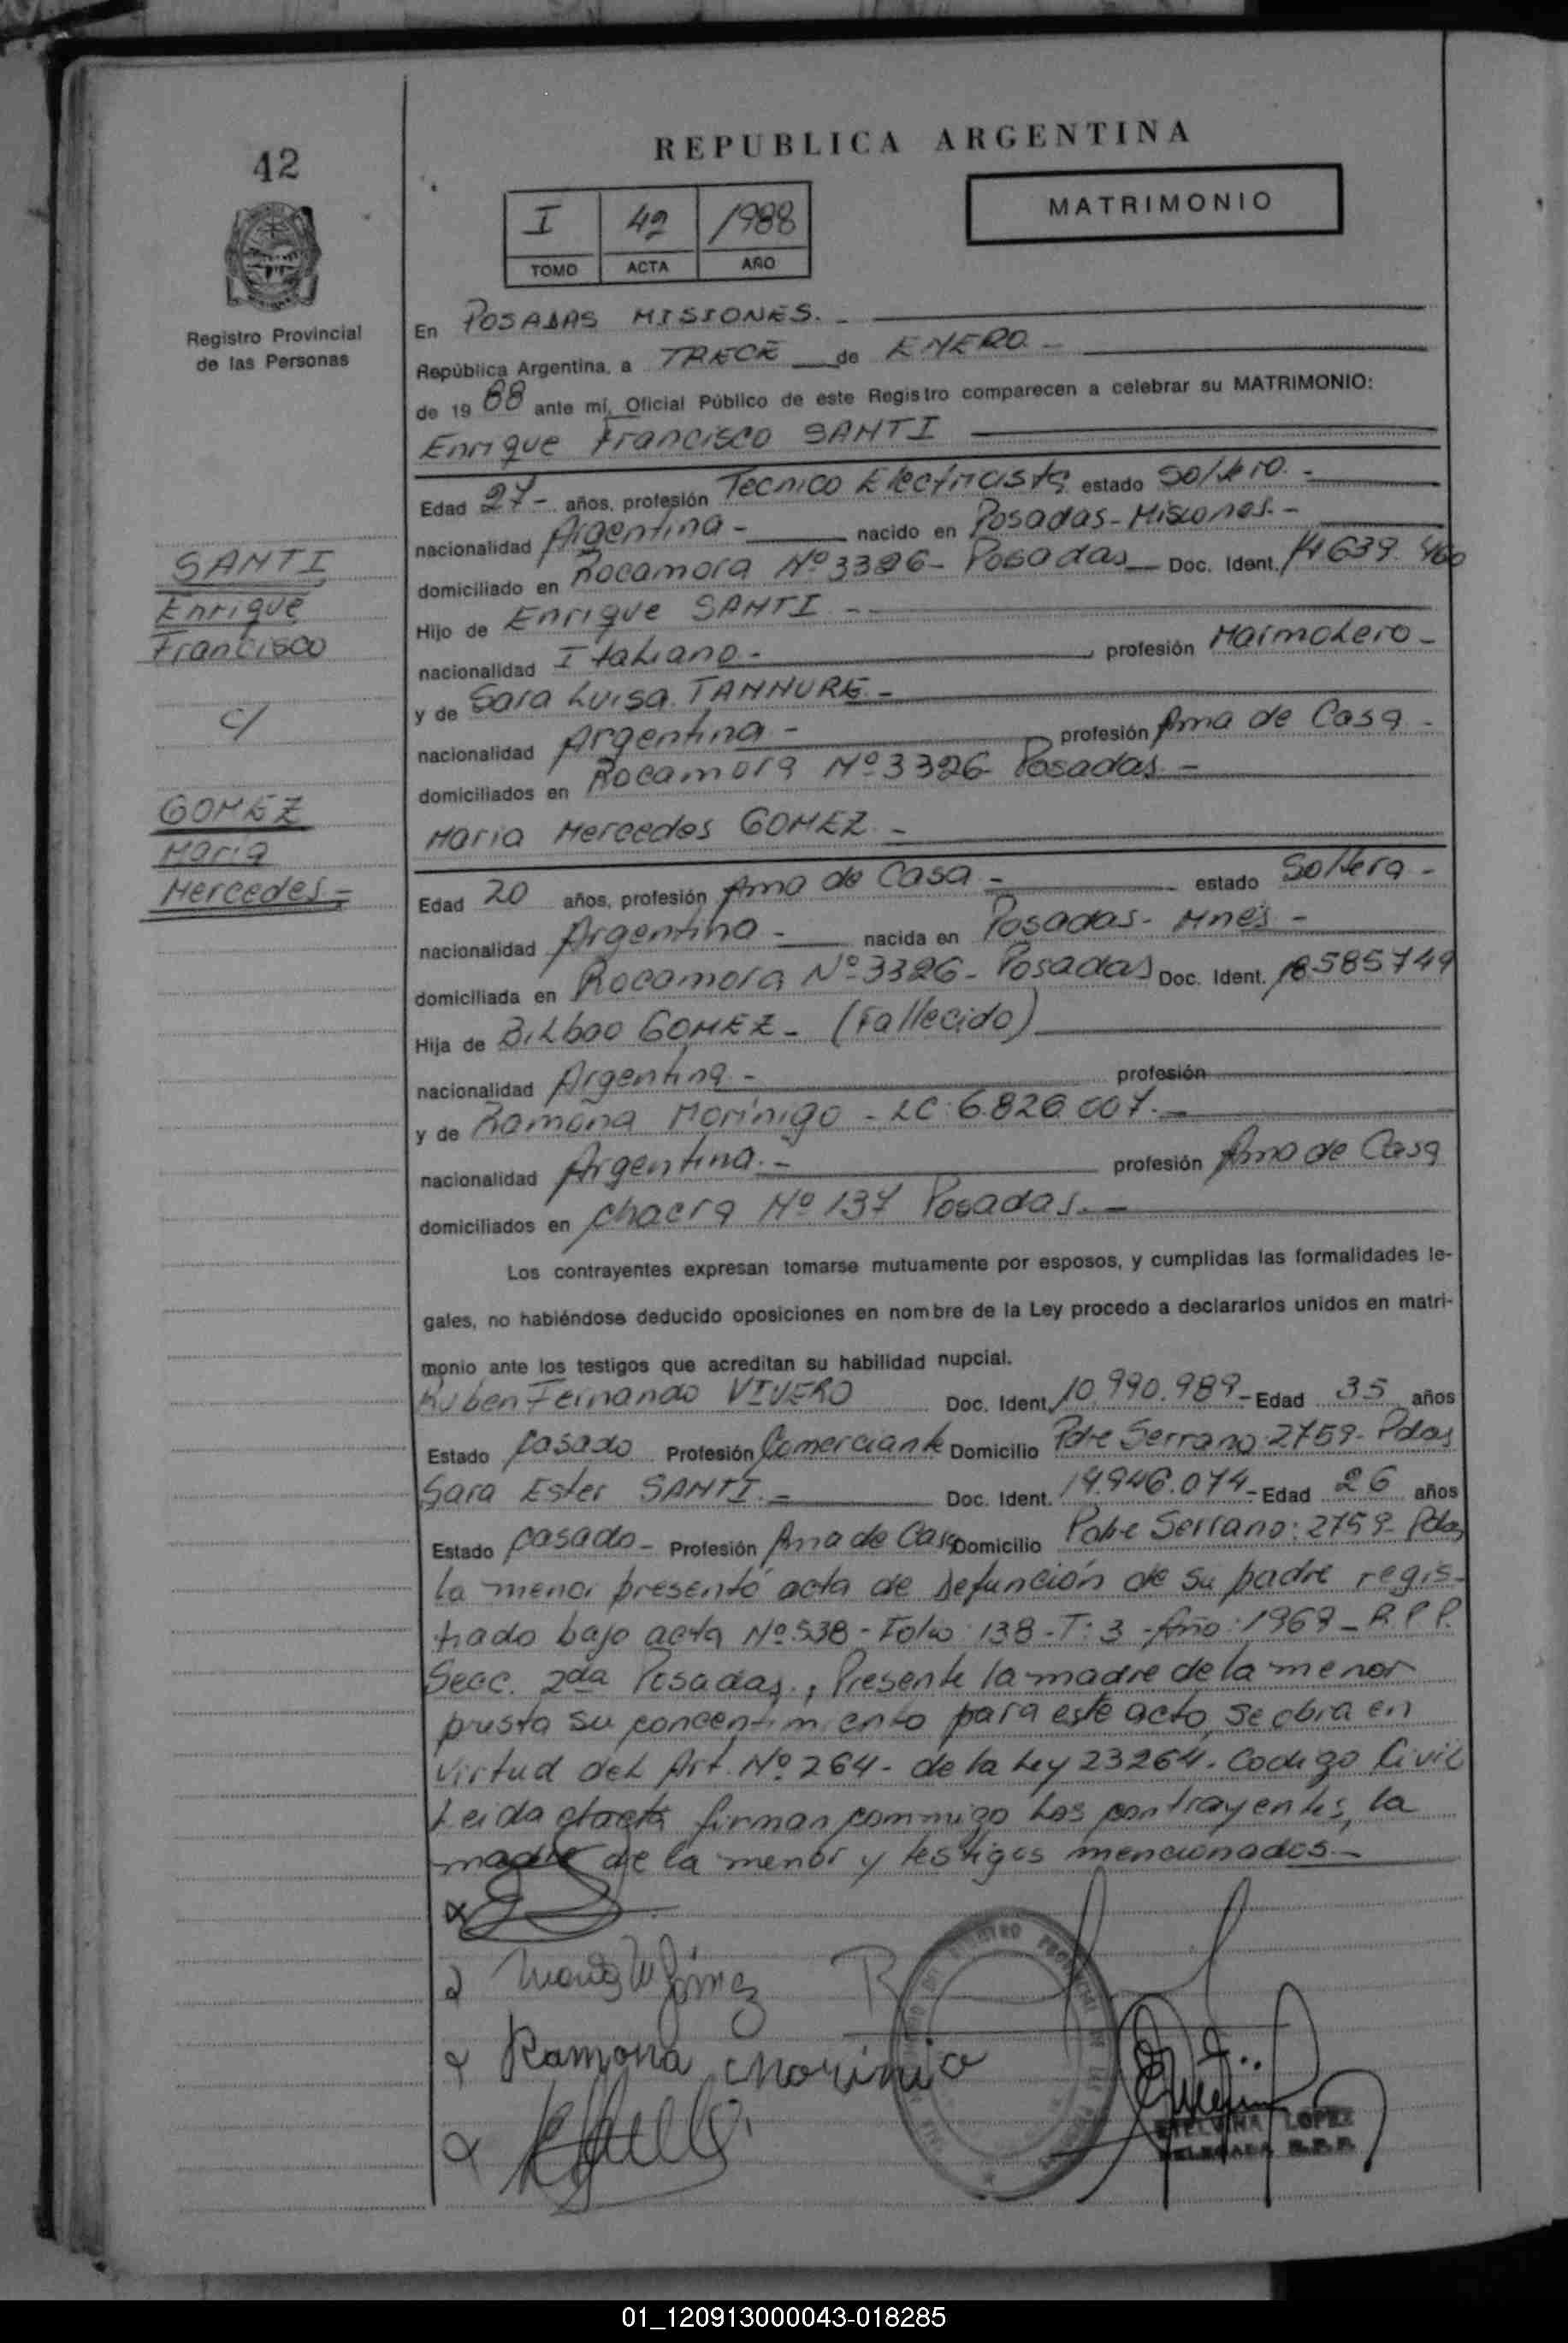 42
REPUBLICA ARGENTINA
MATRIMONIO
I 42 1988
TOMO ACTA AÑO
Registro Provincial
de las Personas
En POSADAS MISIONES. -
República Argentina, a TRECE de ENERO -
de 19 88 ante mí, Oficial Público de este Registro comparecen a celebrar su MATRIMONIO:
Enrique Francisco SANTI
Edad 27 - años, profesión Tecnico Electricista estado Soltero. -
nacionalidad Argentina - nacido en Posadas - Misiones. -
domiciliado en Rocamora Nº 3326 - Posadas Doc. Ident. 14 639. 460
Hijo de Enrique SANTI -
nacionalidad Italiano. - , profesión Marmolero -
y de Sara Luisa TANNURE. -
nacionalidad Argentina - profesión Ama de Casa -
domiciliados en Rocamora Nº 3326 Posadas -
SANTI
Enrique
Francisco
c/
GOMEZ
Maria
Mercedes. =
Maria Mercedes GOMEZ. -
Edad 20 años, profesión Ama de Casa - estado Soltera -
nacionalidad Argentina - nacida en Posadas - Mnes -
domiciliada en Rocamora Nº 3326 - Posadas Doc. Ident. 18.585749
Hija de Bilbao GOMEZ - (Fallecido)
nacionalidad Argentina - profesión
y de Ramona Morínigo - LC: 6.826.007. -
nacionalidad Argentina. - profesión Ama de Casa
domiciliados en chacra Nº 137 Posadas. -
Los contrayentes expresan tomarse mutuamente por esposos, y cumplidas las formalidades le-
gales, no habiéndose deducido oposiciones en nombre de la Ley procedo a declararlos unidos en matri-
monio ante los testigos que acreditan su habilidad nupcial.
Ruben Fernando VIVERO Doc. Ident. 10.990.989 - Edad 35 años
Estado Casado Profesión Comerciante Domicilio Pdre Serrano: 2759 - Pdas
Sara Ester SANTI. = Doc. Ident. 14.946.074 - Edad 26 años
Estado Casado - Profesión Ama de Casa Domicilio Pdre Serrano: 2759 - Pdas
la menor presentó acta de Defunción de su padre regis-
trado bajo acta Nº 538 - Folio: 138 - T: 3 - Año: 1969 - R.P.P.
Secc. 2da Posadas., Presente la madre de la menor
presta su concentimiento para este acto, se obra en
virtud del Art. Nº 264 - de la Ley 23264. Codigo Civil
Leida el acta firman commigo los contrayentes, la
madre de la menor y testigos mencionados -
Maria M Gómez
Ramona Morinigo
ETELVINA LOPEZ
DELEGADA R.P.P.
01_120913000043-018285